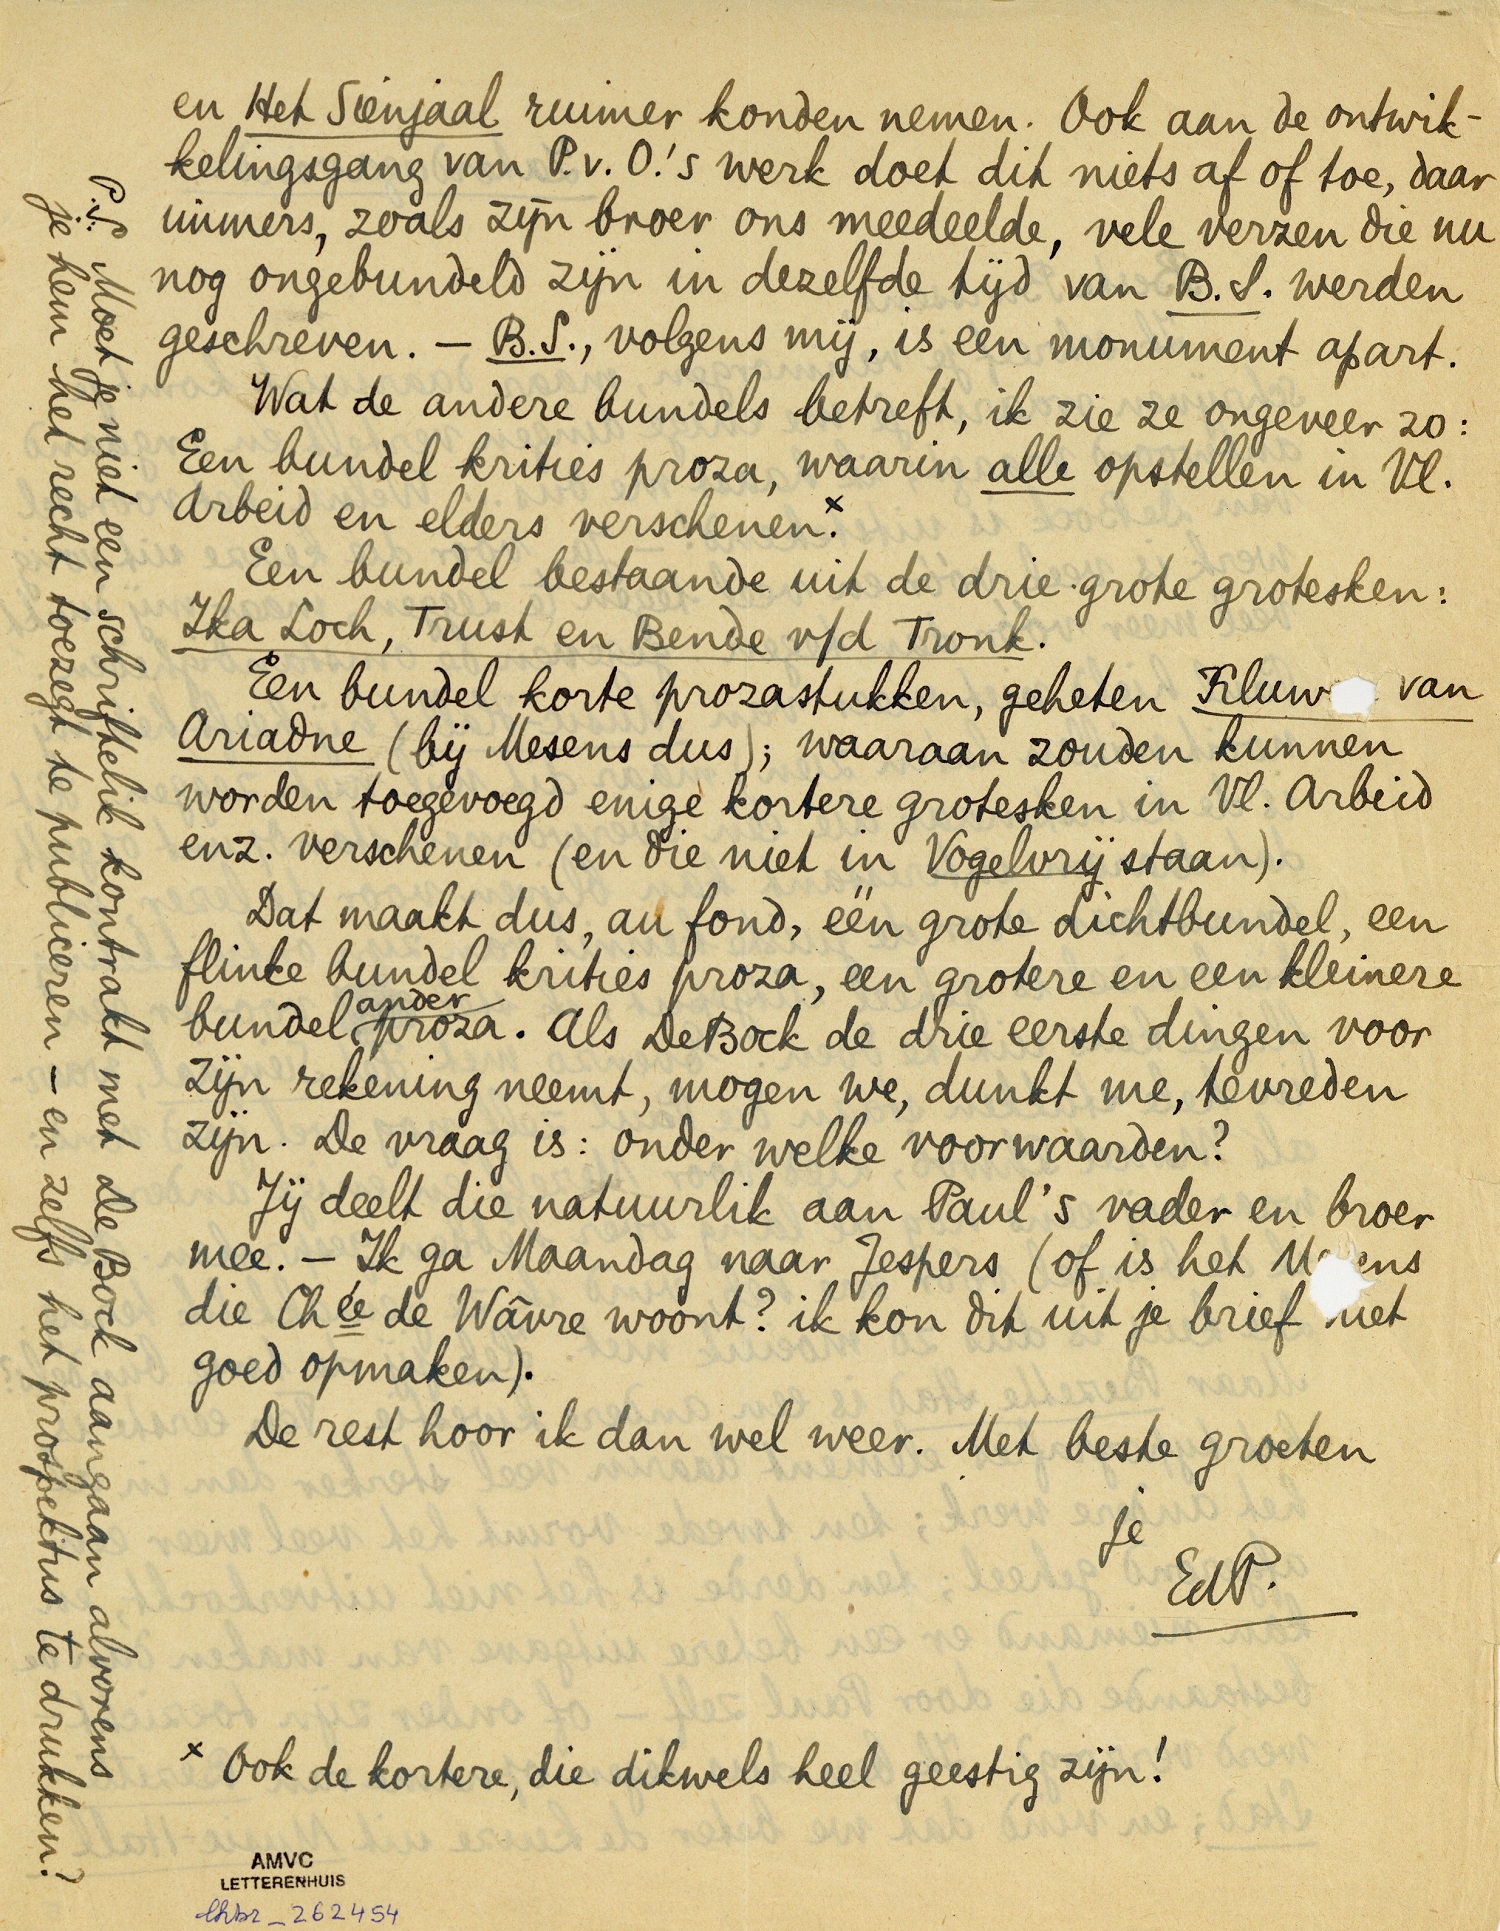 en Het Sienjaal ruimer konden nemen. Ook aan de ontwik-
kelingsgang van P.v.O.'s werk doet dit niets af of toe, daar
immers, zoals zijn broer ons meedeelde, vele verzen die nu
nog ongebundeld zijn in dezelfde tijd van B.S. werden
geschreven. — B.S., volgens mij, is een monument apart.
Wat de andere bundels betreft, ik zie ze ongeveer zo:
Een bundel krities proza, waarin alle opstellen in Vl.
Arbeid en elders verschenen.x
Een bundel bestaande uit de drie grote grotesken:
Ika Loch, Trust en Bende v/d Tronk.
Een bundel korte prozastukken, geheten Kluw van
Ariadne (bij Mesens dus); waaraan zouden kunnen
worden toegevoegd enige kortere grotesken in Vl. Arbeid
enz. verschenen (en die niet in Vogelvrij staan).
Dat maakt dus, au fond, één grote dichtbundel, een
flinke bundel krities proza, een grotere en een kleinere
bundel ander proza. Als De Bock de drie eerste dingen voor
zijn rekening neemt, mogen we, dunkt me, tevreden
zijn. De vraag is: onder welke voorwaarden?
Jij deelt die natuurlik aan Paul's vader en broer
mee. — Ik ga Maandag naar Jespers (of is het M ens
die Chée de Wâvre woont? ik kon dit uit je brief niet
goed opmaken).
De rest hoor ik dan wel weer. Met beste groeten
je
EdP.
x Ook de kortere, die dikwels heel geestig zijn!
P.S. Moet je niet een schriftelik kontrakt met De Bock aangaan alvorens
je hem het recht toezegt te publiceren – en zelfs het prospektus te drukken?
AMVC
LETTERENHUIS
lhbr_262454